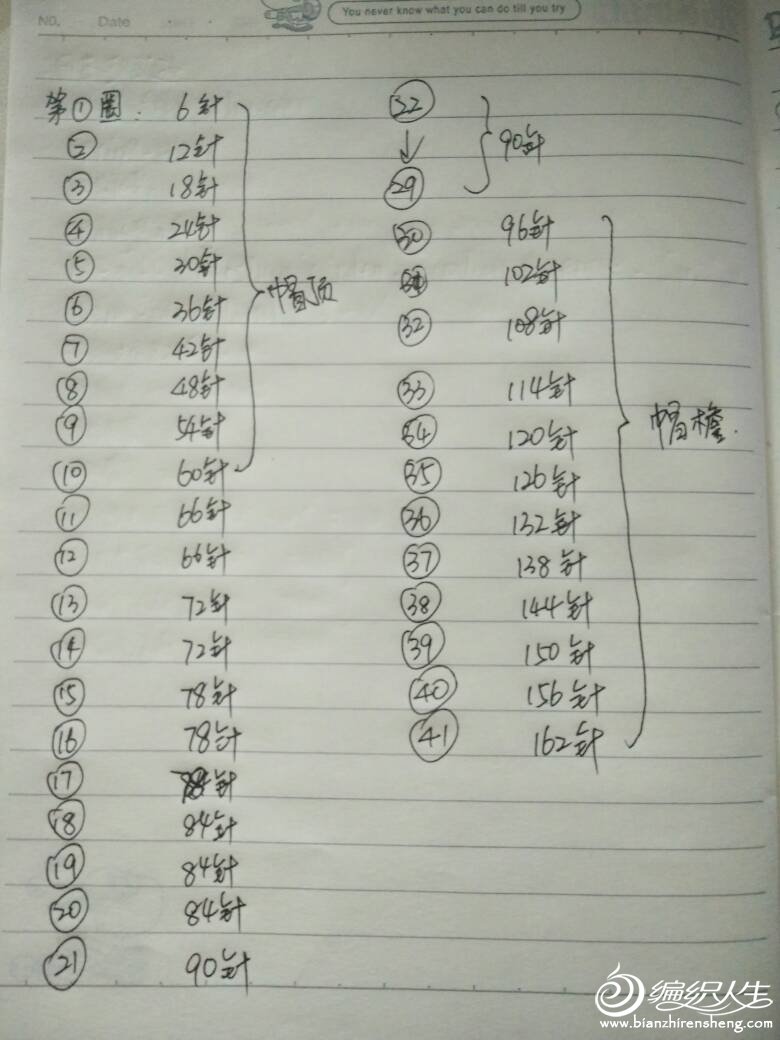 NO.
Date
You never know what you can do till you try
第①圈: 6针
② 12针
③ 18针
④ 24针
⑤ 30针
⑥ 36针
⑦ 42针
⑧ 48针
⑨ 54针
⑩ 60针
帽顶
⑪ 66针
⑫ 66针
⑬ 72针
⑭ 72针
⑮ 78针
⑯ 78针
⑰ 针
⑱ 84针
⑲ 84针
⑳ 84针
㉑ 90针
㉒
↓
㉙
90针
㉚ 96针
㉛ 102针
㉜ 108针
㉝ 114针
㉞ 120针
㉟ 126针
㊱ 132针
㊲ 138针
㊳ 144针
㊴ 150针
㊵ 156针
㊶ 162针
帽檐.
编织人生
www.bianzhirensheng.com